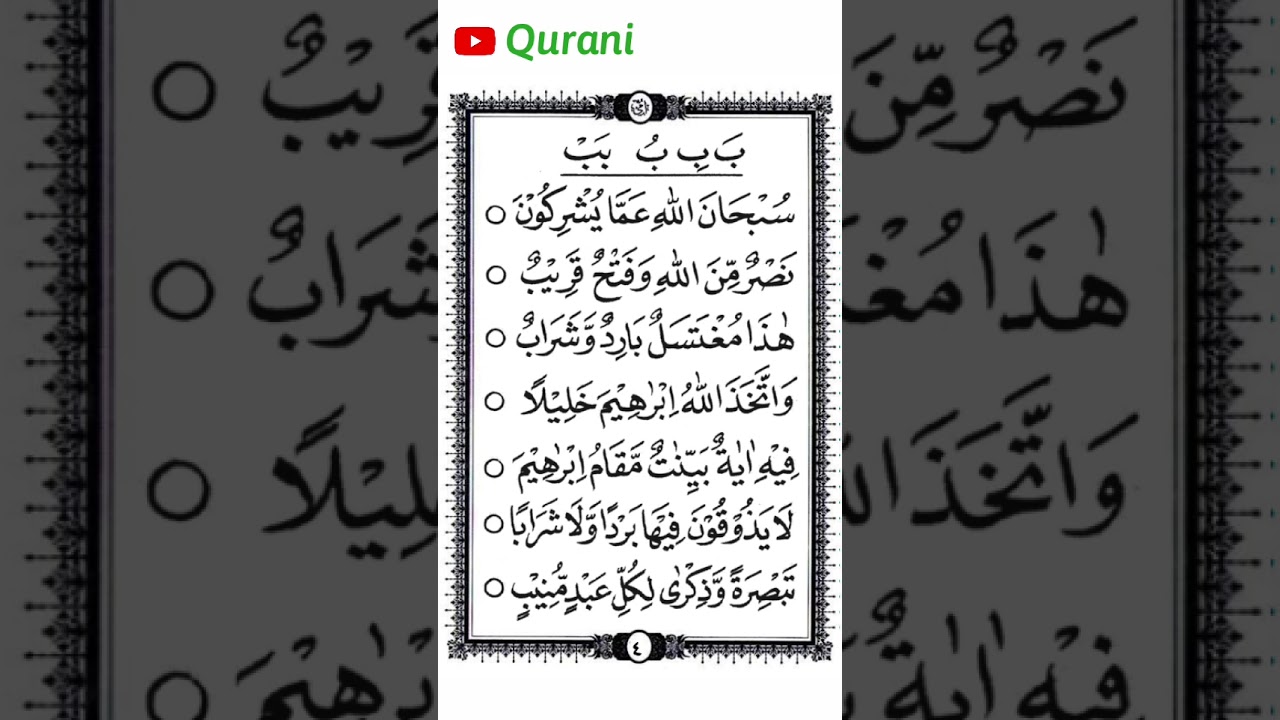 Qurani
بَ بِ بُ بَبْ
سُبْحَانَ اللّٰهِ عَمَّا يُشْرِكُوْنَ ○
نَصْرٌ مِّنَ اللّٰهِ وَفَتْحٌ قَرِيْبٌ ○
هٰذَا مُغْتَسَلٌ بَارِدٌ وَّشَرَابٌ ○
وَاتَّخَذَ اللّٰهُ اِبْرٰهِيْمَ خَلِيْلًا ○
فِيْهِ اٰيَاتٌ بَيِّنٰتٌ مَّقَامُ اِبْرٰهِيْمَ ○
لَا يَذُوْقُوْنَ فِيْهَا بَرْدًا وَّلَا شَرَابًا ○
تَبْصِرَةً وَّذِكْرٰى لِكُلِّ عَبْدٍ مُّنِيْبٍ ○
٤